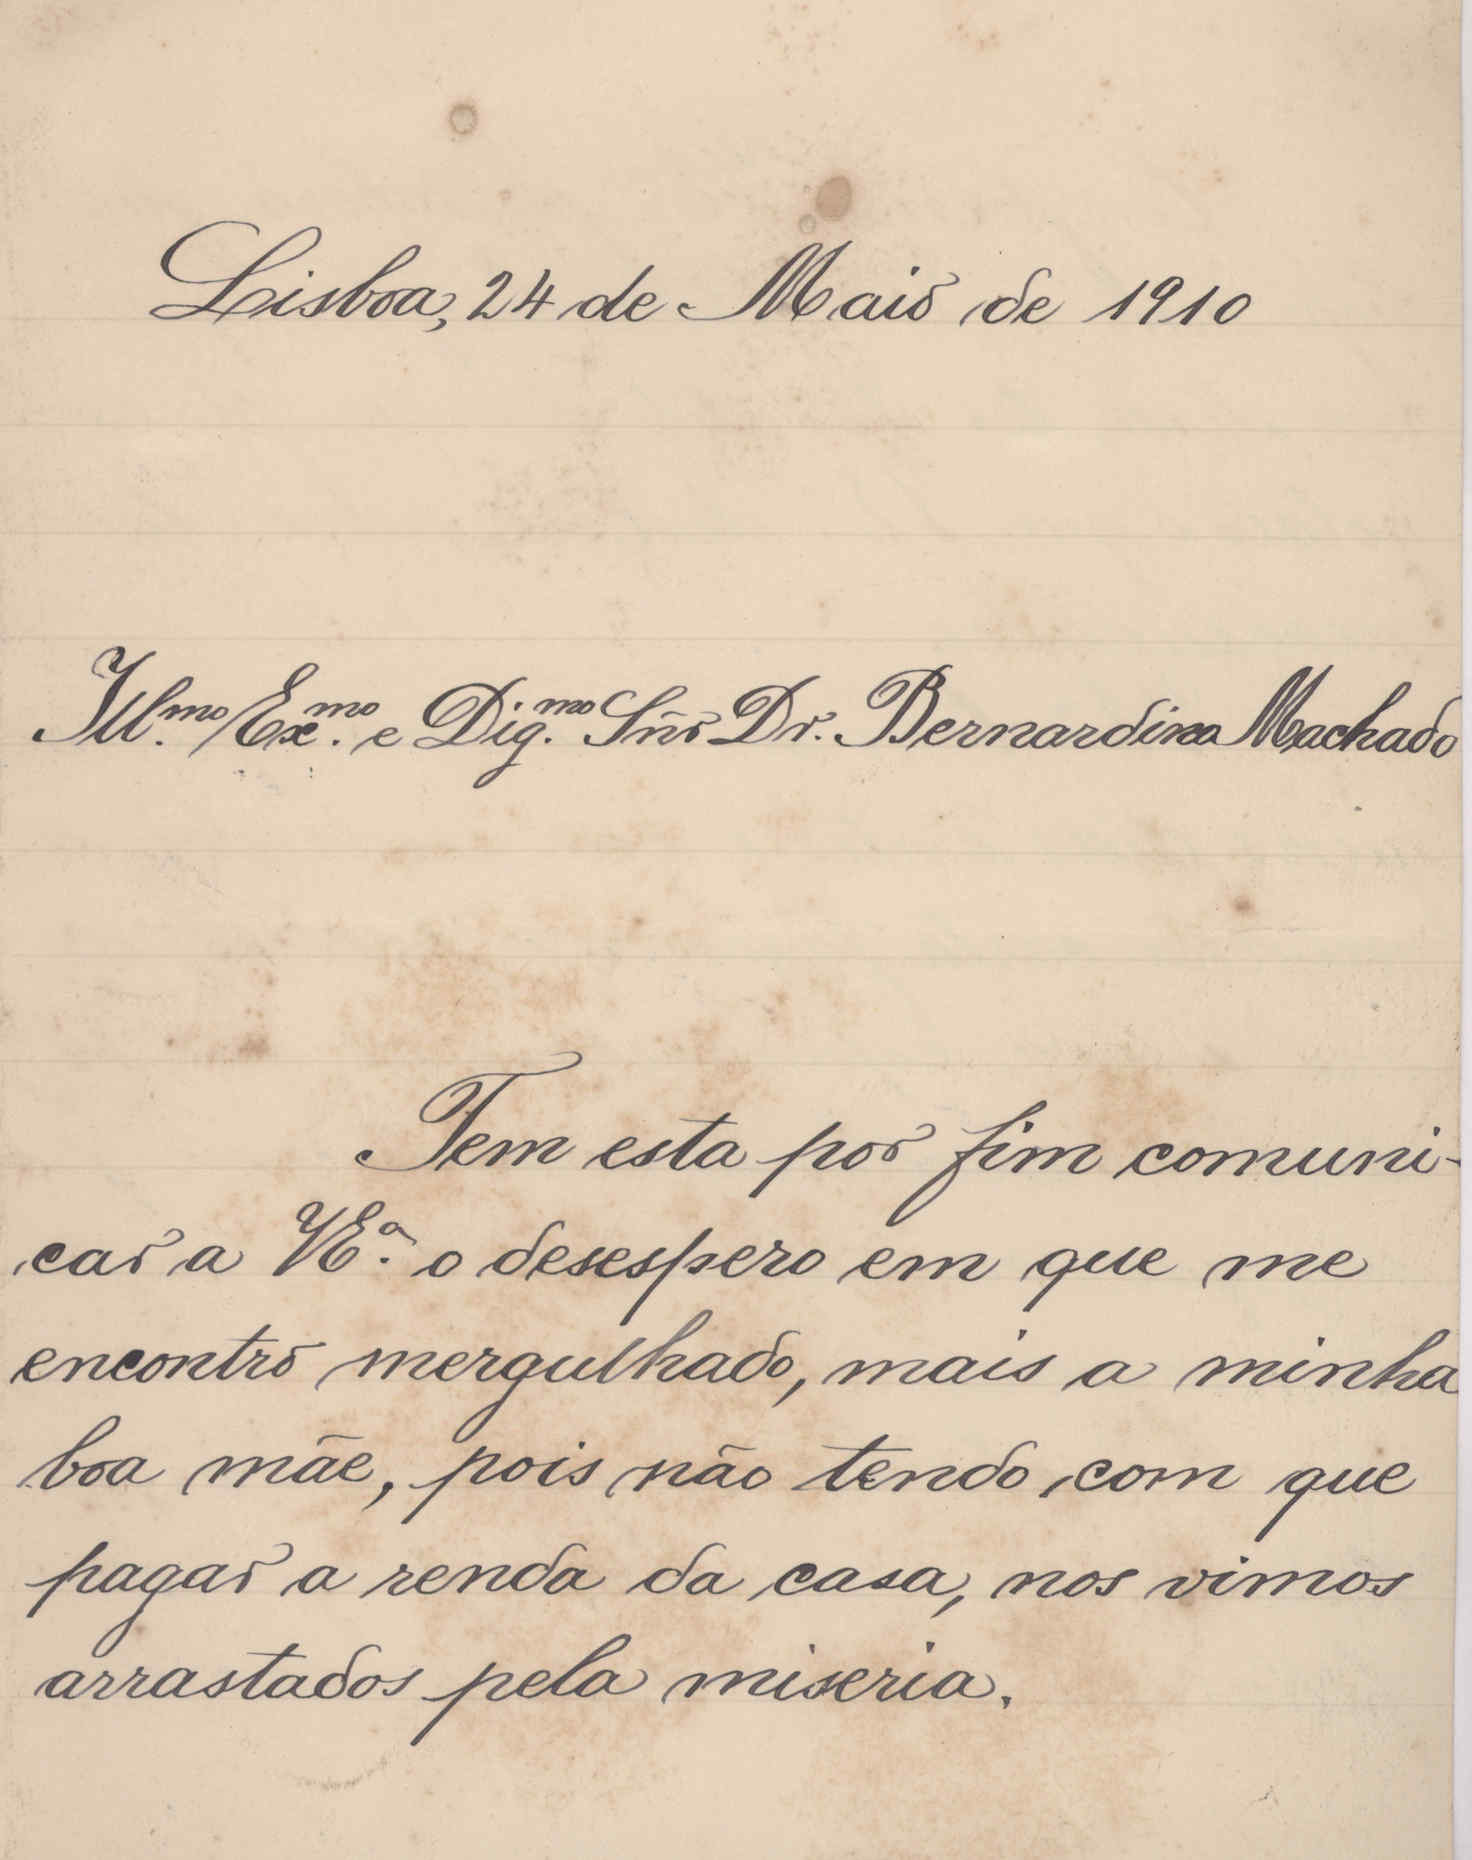 Lisboa, 24 de Maio de 1910
Ill.mo Ex.mo e Dig.mo Snr Dr. Bernardino Machado
Tem esta por fim comuni-
car a V.E.a o desespero em que me
encontro mergulhado, mais a minha
boa mãe, pois não tendo com que
pagar a renda da casa, nos vimos
arrastados pela miseria.